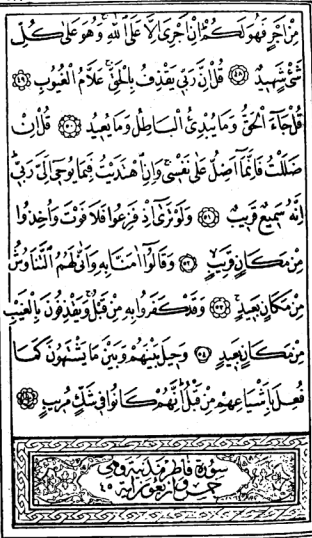 مِنْ اَجْرٍ فَهُوَ لَكُمْ اِنْ اَجْرِىَ اِلَّا عَلَى اللّٰهِ وَهُوَ عَلٰى كُلِّ
شَىْءٍ شَهِيدٌ ٤٨ قُلْ اِنَّ رَبِّى يَقْذِفُ بِالْحَقِّ عَلَّامُ الْغُيُوبِ ٤٩
قُلْ جَاءَ الْحَقُّ وَمَا يُبْدِئُ الْبَاطِلُ وَمَا يُعِيدُ ٥٠ قُلْ اِنْ
ضَلَلْتُ فَاِنَّمَا اَضِلُّ عَلٰى نَفْسِى وَاِنِ اهْتَدَيْتُ فَبِمَا يُوحِى اِلَىَّ رَبِّى
اِنَّهُ سَمِيعٌ قَرِيبٌ ٥١ وَلَوْ تَرٰى اِذْ فَزِعُوا فَلَا فَوْتَ وَاُخِذُوا
مِنْ مَكَانٍ قَرِيبٍ ٥٢ وَقَالُوا اٰمَنَّا بِهِ وَاَنّٰى لَهُمُ التَّنَاوُشُ
مِنْ مَكَانٍ بَعِيدٍ ٥٣ وَقَدْ كَفَرُوا بِهِ مِنْ قَبْلُ وَيَقْذِفُونَ بِالْغَيْبِ
مِنْ مَكَانٍ بَعِيدٍ ٥٤ وَحِيلَ بَيْنَهُمْ وَبَيْنَ مَا يَشْتَهُونَ كَمَا
فُعِلَ بِاَشْيَاعِهِمْ مِنْ قَبْلُ اِنَّهُمْ كَانُوا فِى شَكٍّ مُرِيبٍ
سورة فاطر مدنية وهى
خمس واربعون اية ٤٥